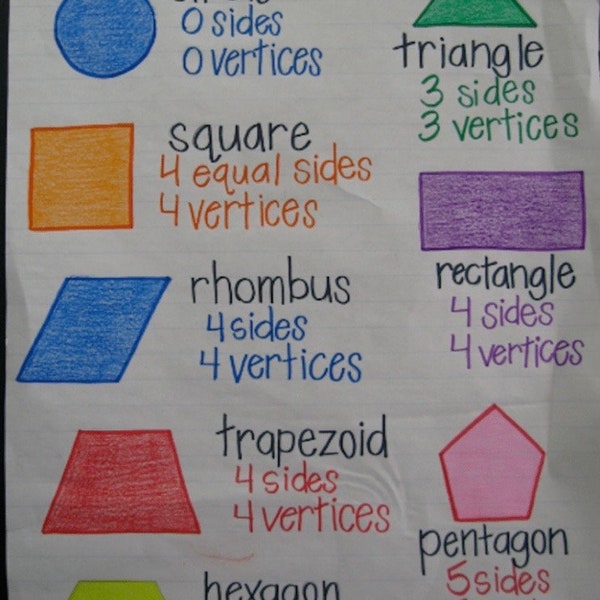 0 sides
0 vertices
triangle
3 sides
3 vertices
square
4 equal sides
4 vertices
rectangle
4 sides
4 vertices
rhombus
4 sides
4 vertices
trapezoid
4 sides
4 vertices
pentagon
5 sides
hexagon